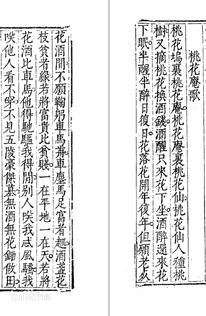 桃花庵歌
桃花塢裏桃花庵桃花庵裏桃花仙桃花仙人種桃
樹又摘桃花換酒錢酒醒只來花下坐酒醉還來花
下眠半醒半醉日復日花落花開年復年但願老死
花酒間不願鞠躬車馬前車塵馬足富者趣酒盞花
枝貧者緣若將富貴比貧賤一在平地一在天若將
花酒比車馬他得馳驅我得閒別人咲我忒風騷我
咲他人看不穿不見五陵豪傑墓無酒無花鋤做田